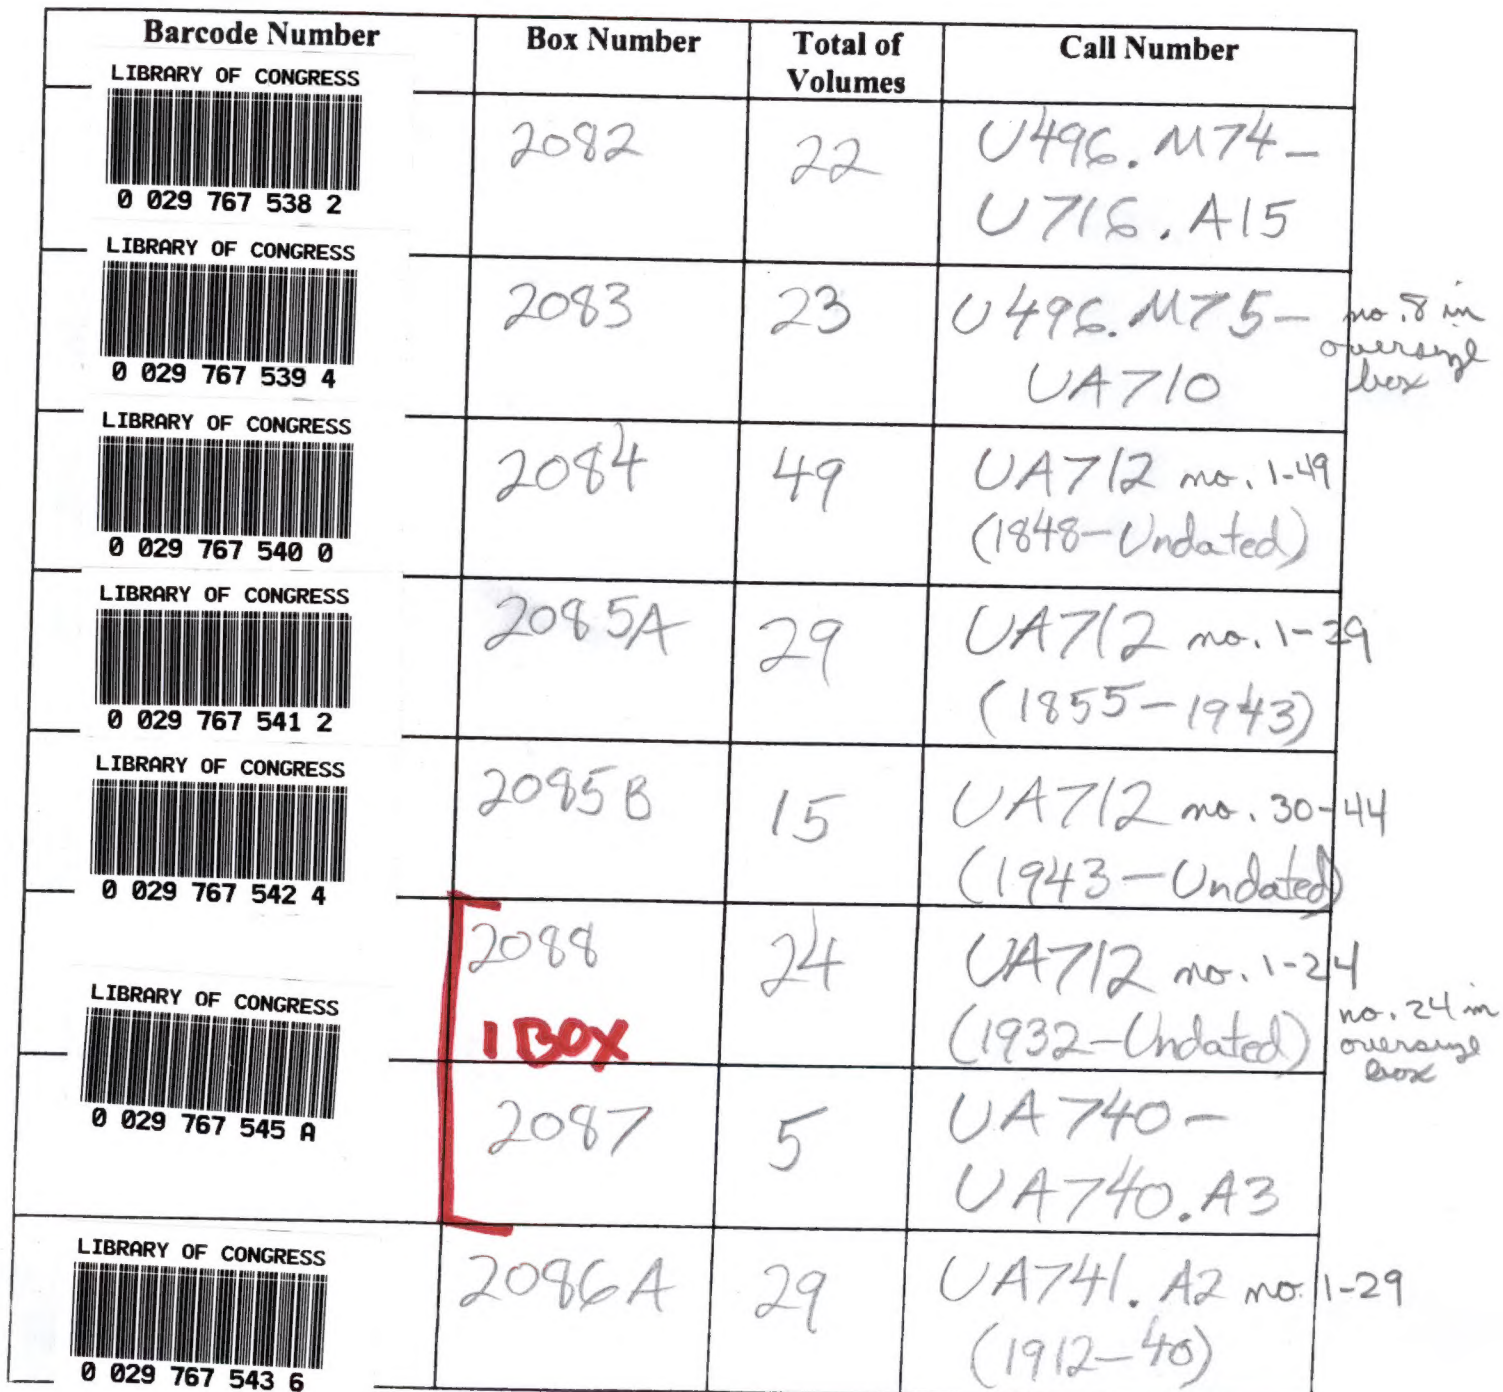 Barcode Number Box Number Total of Volumes Call Number
LIBRARY OF CONGRESS
0 029 767 538 2
2082
22
U496.M74-
U716.A15
LIBRARY OF CONGRESS
0 029 767 539 4
2083
23
U496.M75-
UA710
no. 8 in
oversize
box
LIBRARY OF CONGRESS
0 029 767 540 0
2084
49
UA712 no. 1-49
(1848-Undated)
LIBRARY OF CONGRESS
0 029 767 541 2
2085A
29
UA712 no. 1-29
(1855-1943)
LIBRARY OF CONGRESS
0 029 767 542 4
2085B
15
UA712 no. 30-44
(1943-Undated)
LIBRARY OF CONGRESS
0 029 767 545 A
2088
1 BOX
24
UA712 no. 1-24
(1932-Undated)
no. 24 in
oversize
box
2087
5
UA740-
UA740.A3
LIBRARY OF CONGRESS
0 029 767 543 6
2086A
29
UA741.A2 no. 1-29
(1912-40)